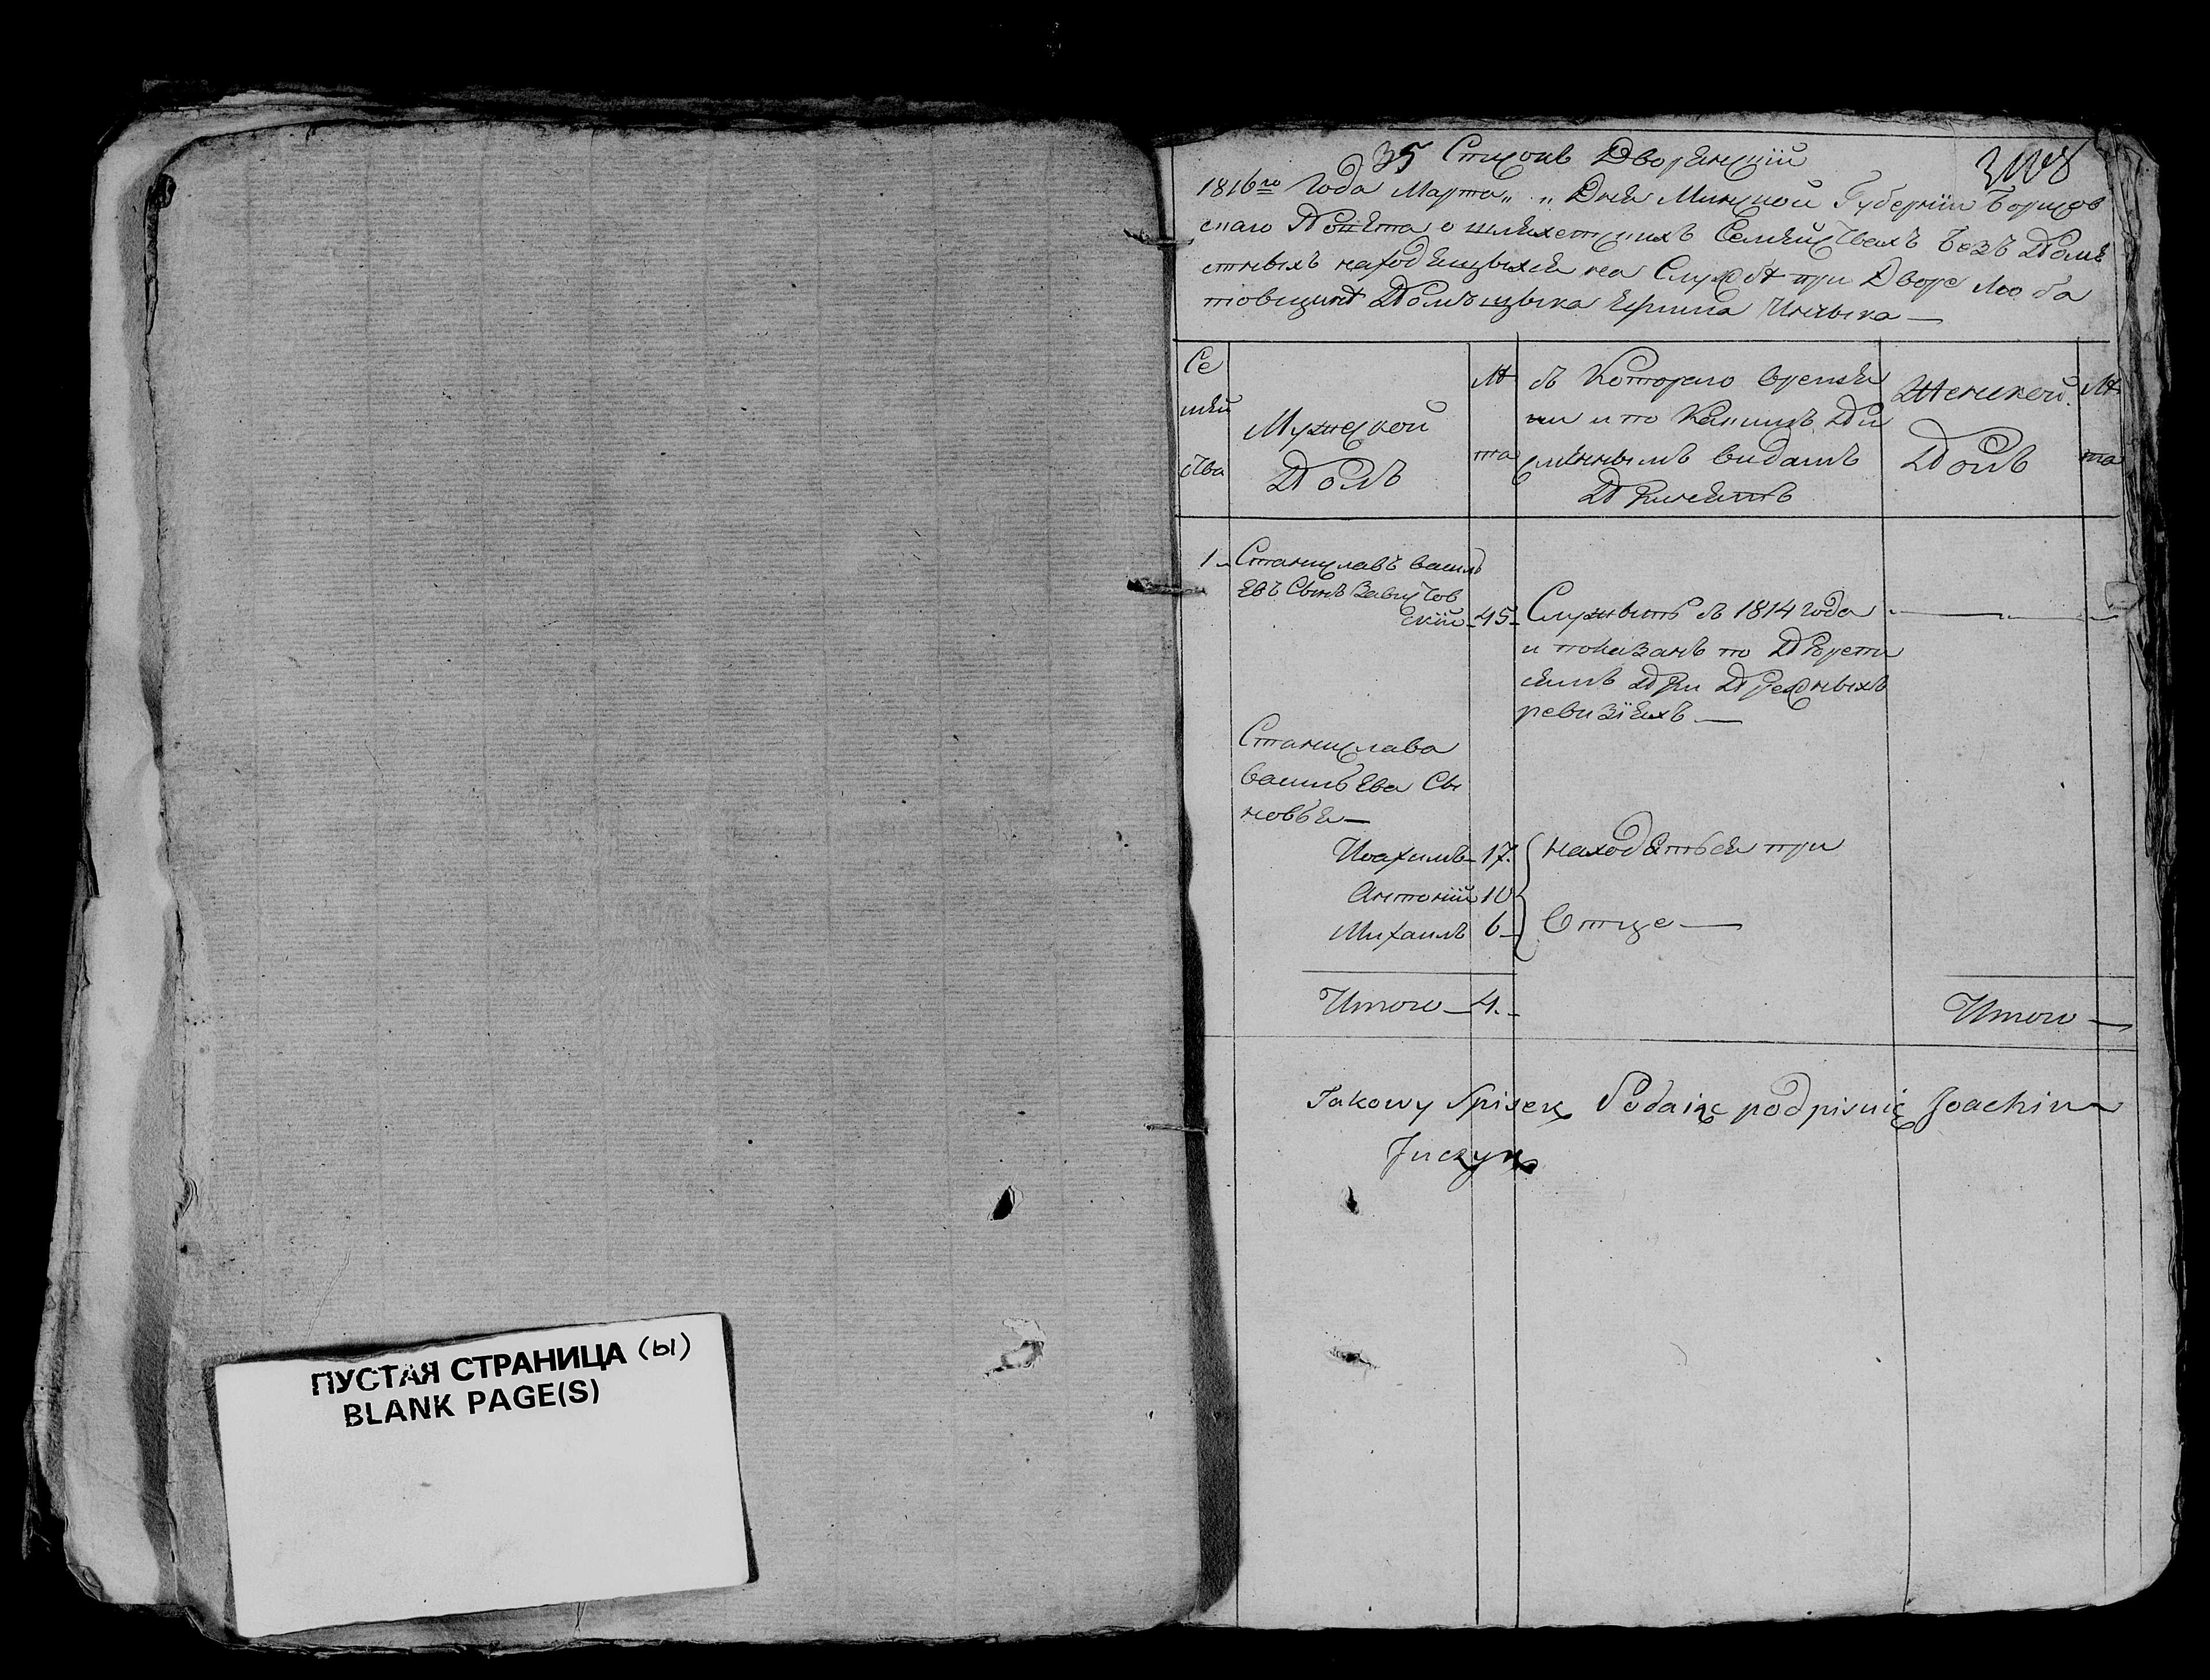 ПУСТАЯ СТРАНИЦА (ы)
BLANK PAGE(S)
35 Списокъ Дворянскій
1816го Года Марта „ „ Дня Минской Губерніи Борисов
скаго Повета о шляхетскихъ Семействахъ безъ Поме
стныхъ находящыхся на Службѣ при Дворе Люба
товщинѣ Помѣщыка
Се
мей
ства
Мужской
Полъ
Лѣ
та
съ Котораго времѣ
ни и по Какимъ Пи
сменнымъ видамъ
Принятъ
Женской
Полъ
Лѣ
та
1 Станиславъ василь
евъ Сынъ Завистов
скій 45 Служытъ съ 1814 года
и показанъ по
при Прежныхъ
ревизіяхъ
Станислава
васильева Сы
новья
Иоахимъ 17. находятся при
Антоній 10
Михаилъ 6 Отце
Итого 4.
Итого
Takowy Spisek Podaiąc podpisuię Joachim
Juczyn